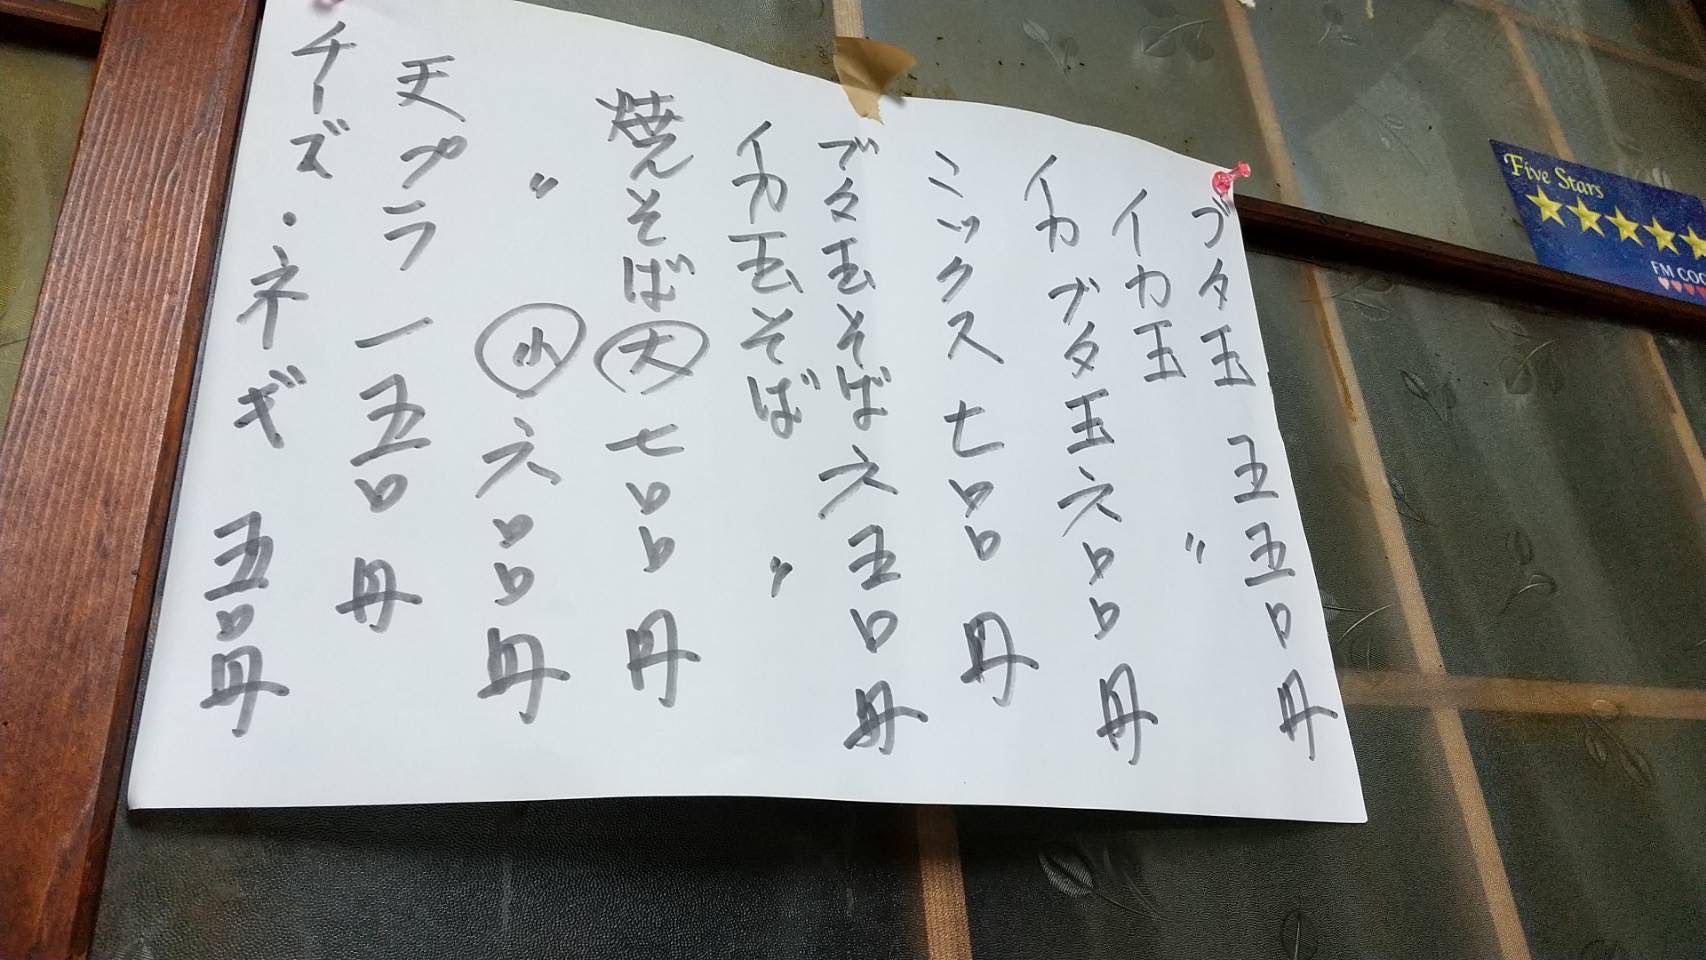 ブタ玉 五五〇円
イカ玉 〃
イカブタ玉 六〇〇円
ミックス 七〇〇円
ブタ玉そば 六五〇円
イカ玉そば 〃
焼そば 大 七〇〇円
〃 小 六〇〇円
天プラ 一五〇円
チーズ・ネギ 五〇円
Five Stars
FM COC